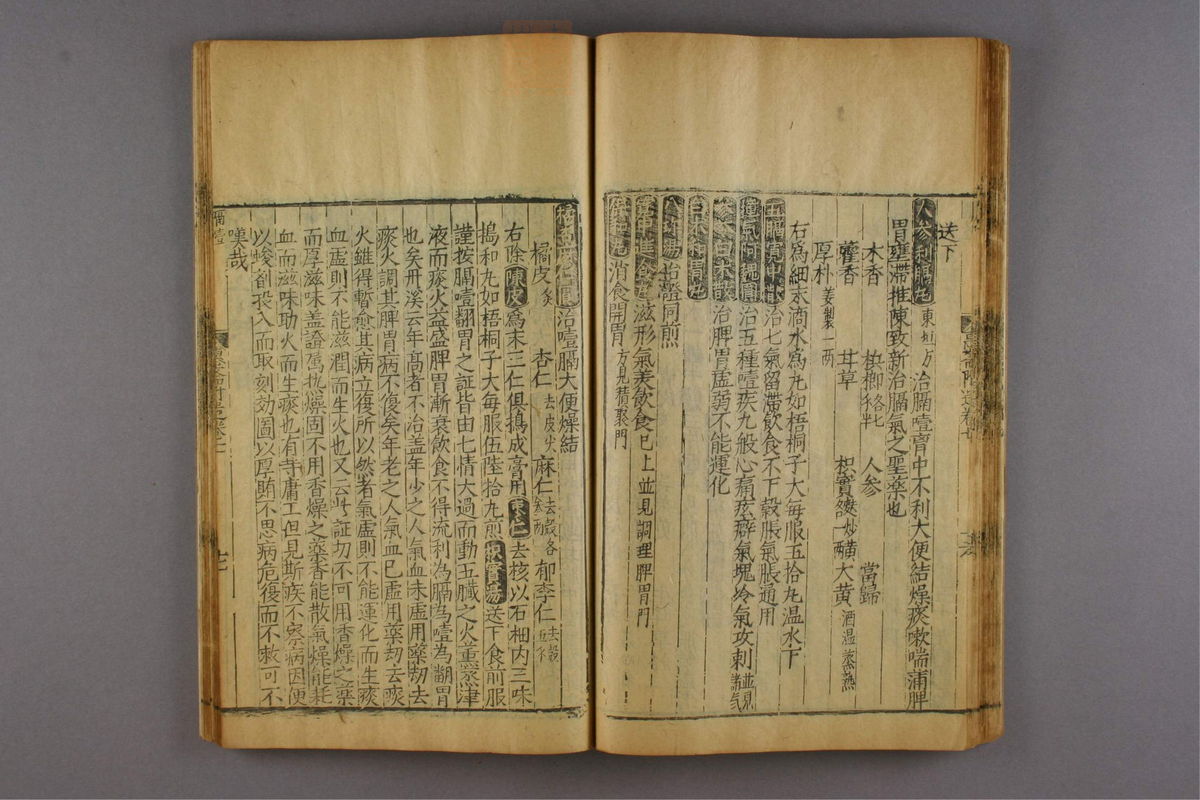 送下
人參利膈丸 東垣方 治膈噎胷中不利大便結燥痰嗽喘滿脾
胃壅滯推陳致新治膈氣之聖藥也
木香 檳榔各半 人參 當歸
藿香 甘草 枳實麩炒黃各一兩 大黃酒溫蒸熟
厚朴姜製一兩
右為細末滴水為丸如梧桐子大每服五拾丸温水下
五膈寬中散 治七氣留滯飲食不下穀脹氣脹通用
治五種噎疾九般心痛痃癖氣塊冷氣攻刺並見諸氣
參苓白朮散 治脾胃虛弱不能運化
白朮和胃丸
治證同煎
進食丸 滋形氣美飲食已上並見調理脾胃門
保和丸 消食開胃 方見積聚門
橘杏麻仁圓 治噎膈大便燥結
橘皮 杏仁去皮尖 麻仁去殼各 郁李仁去殼
右除陳皮為末三仁俱搗成膏用棗仁去核以石柏内三味
搗和丸如梧桐子大每服伍陸拾丸煎枳實湯送下食前服
謹按膈噎翻胃之証皆由七情大過而動五臟之火熏蒸津
液而痰火益盛脾胃漸衰飲食不得流利為膈為噎為翻胃
也矣丹溪云年高者不治盖年少之人氣血未虛用藥刼去
痰火調其脾胃病不復矣年老之人氣血已虛用藥刼去痰
火雖得暫愈其病立復所以然者氣虛則不能運化而生痰
血虛則不能滋潤而生火也又云此証切不可用香燥之藥
而厚滋味盖證属热燥固不用香燥之藥香能散氣燥能耗
血而滋味助火而生痰也有等庸工但見斯疾不察病因便
以峻劑投入而取刻効圖以厚賄不思病危復而不救可不
嘆哉
膈噎